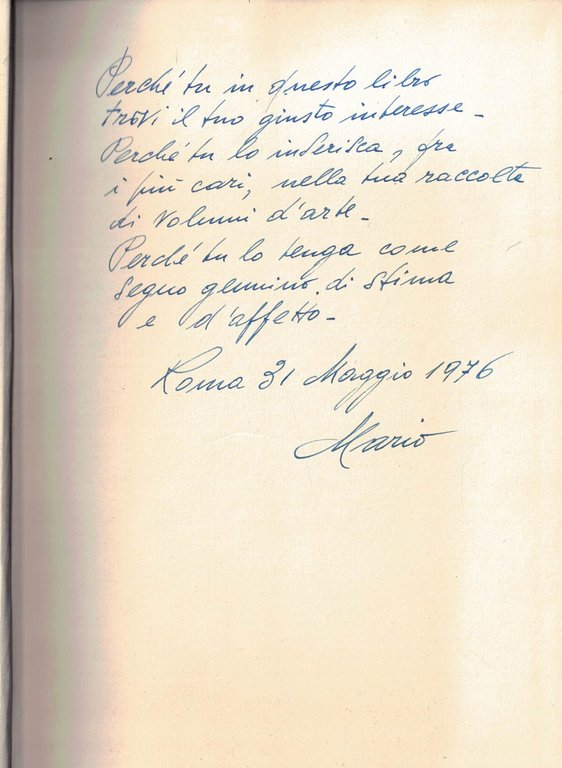 Perché tu in questo libro
trovi il tuo giusto interesse -
Perché tu lo inserisca, fra
i più cari, nella tua raccolta
di volumi d'arte -
Perché tu lo tenga come
segno genuino di stima
e d'affetto -
Roma 31 Maggio 1976
Mario